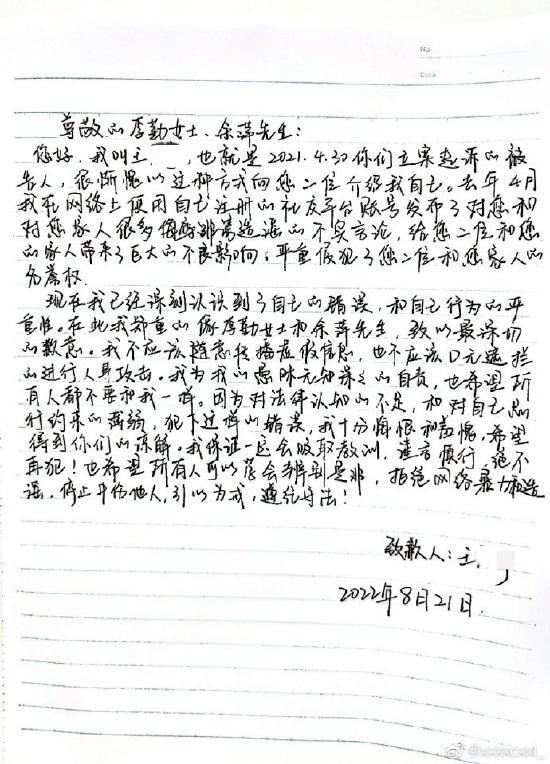 No.
Date
尊敬的李勤女士、余萍先生：
您好，我叫王 ，也就是2021.4.30你们立案起诉的被
告人，很惭愧以这种方式向您二位介绍我自己。去年4月
我在网络上使用自己注册的社交平台账号发布了对您和
对您家人很多侮辱诽谤造谣的不实言论，给您二位和您
的家人带来了巨大的不良影响，严重侵犯了您二位和您家人的
名誉权。
现在我已经深刻认识到了自己的错误，和自己行为的严
重性。在此我郑重的像李勤女士和余萍先生，致以最深切
的歉意。我不应该随意传播虚假信息，也不应该口无遮拦
的进行人身攻击。我为我的愚昧无知深深的自责，也希望所
有人都不要和我一样。因为对法律认知的不足，和对自己言
行约束的薄弱，犯下这样的错误，我十分悔恨和羞愧，希望
得到你们的谅解。我保证一定会吸取教训，谨言慎行，绝不
再犯！也希望所有人可以学会明辨是非，拒绝网络暴力和造
谣，停止中伤他人，引以为戒，遵纪守法！
致歉人：王
2022年8月21日
@xxxxcxxl_